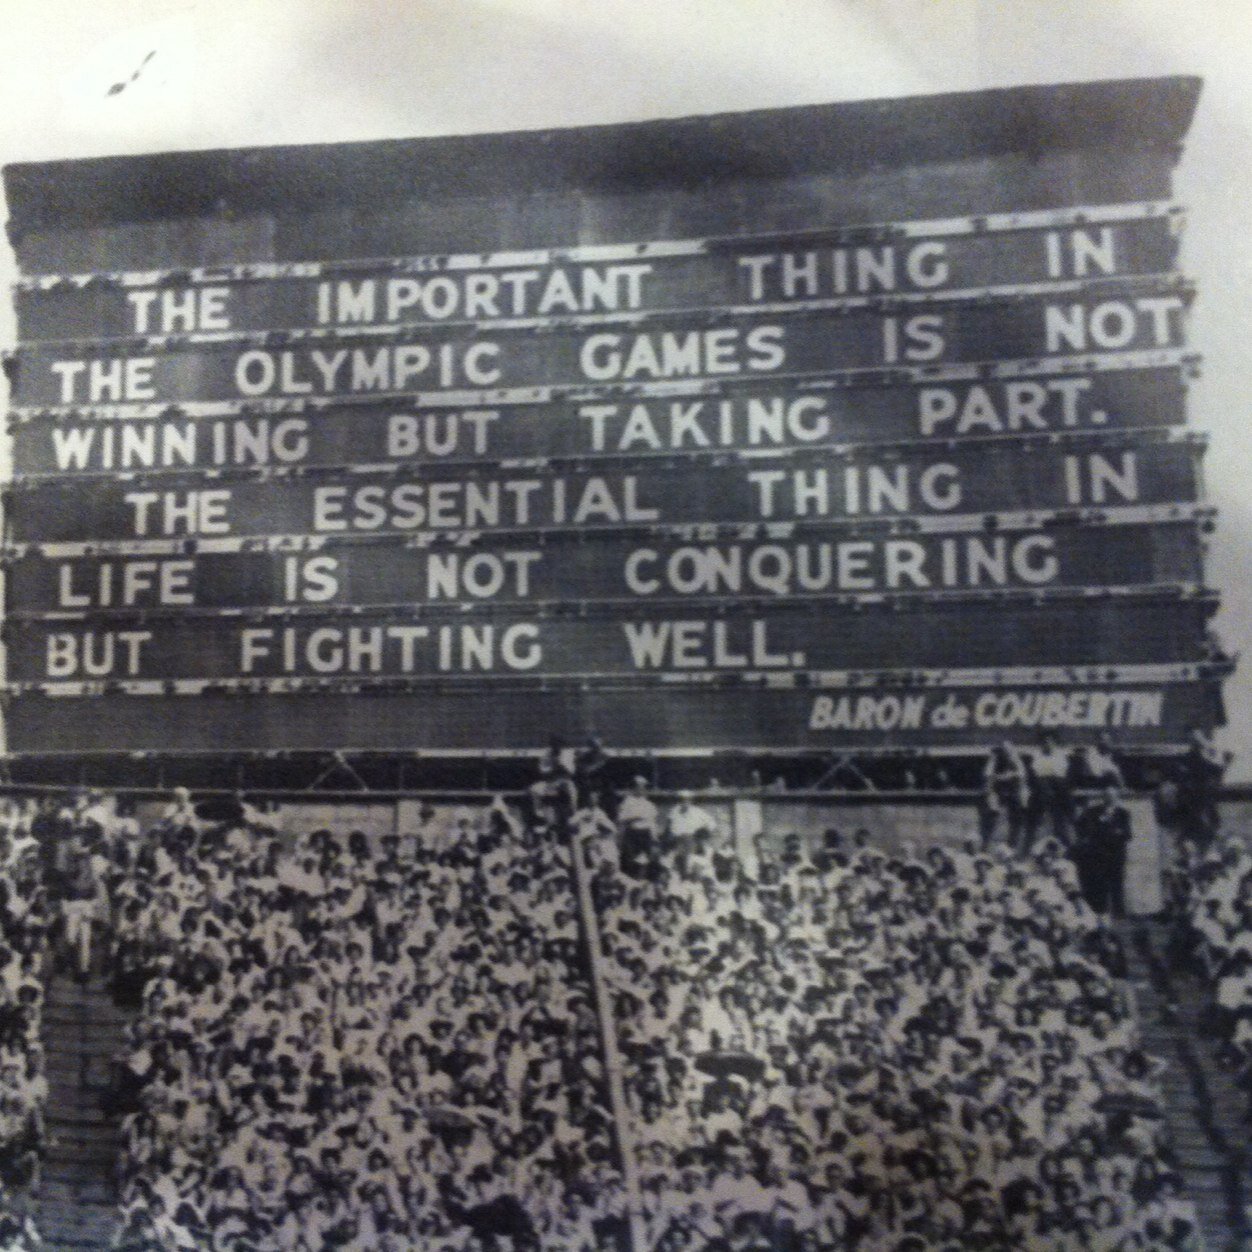 THE IMPORTANT THING IN
THE OLYMPIC GAMES IS NOT
WINNING BUT TAKING PART.
THE ESSENTIAL THING IN
LIFE IS NOT CONQUERING
BUT FIGHTING WELL.
BARON de COUBERTIN